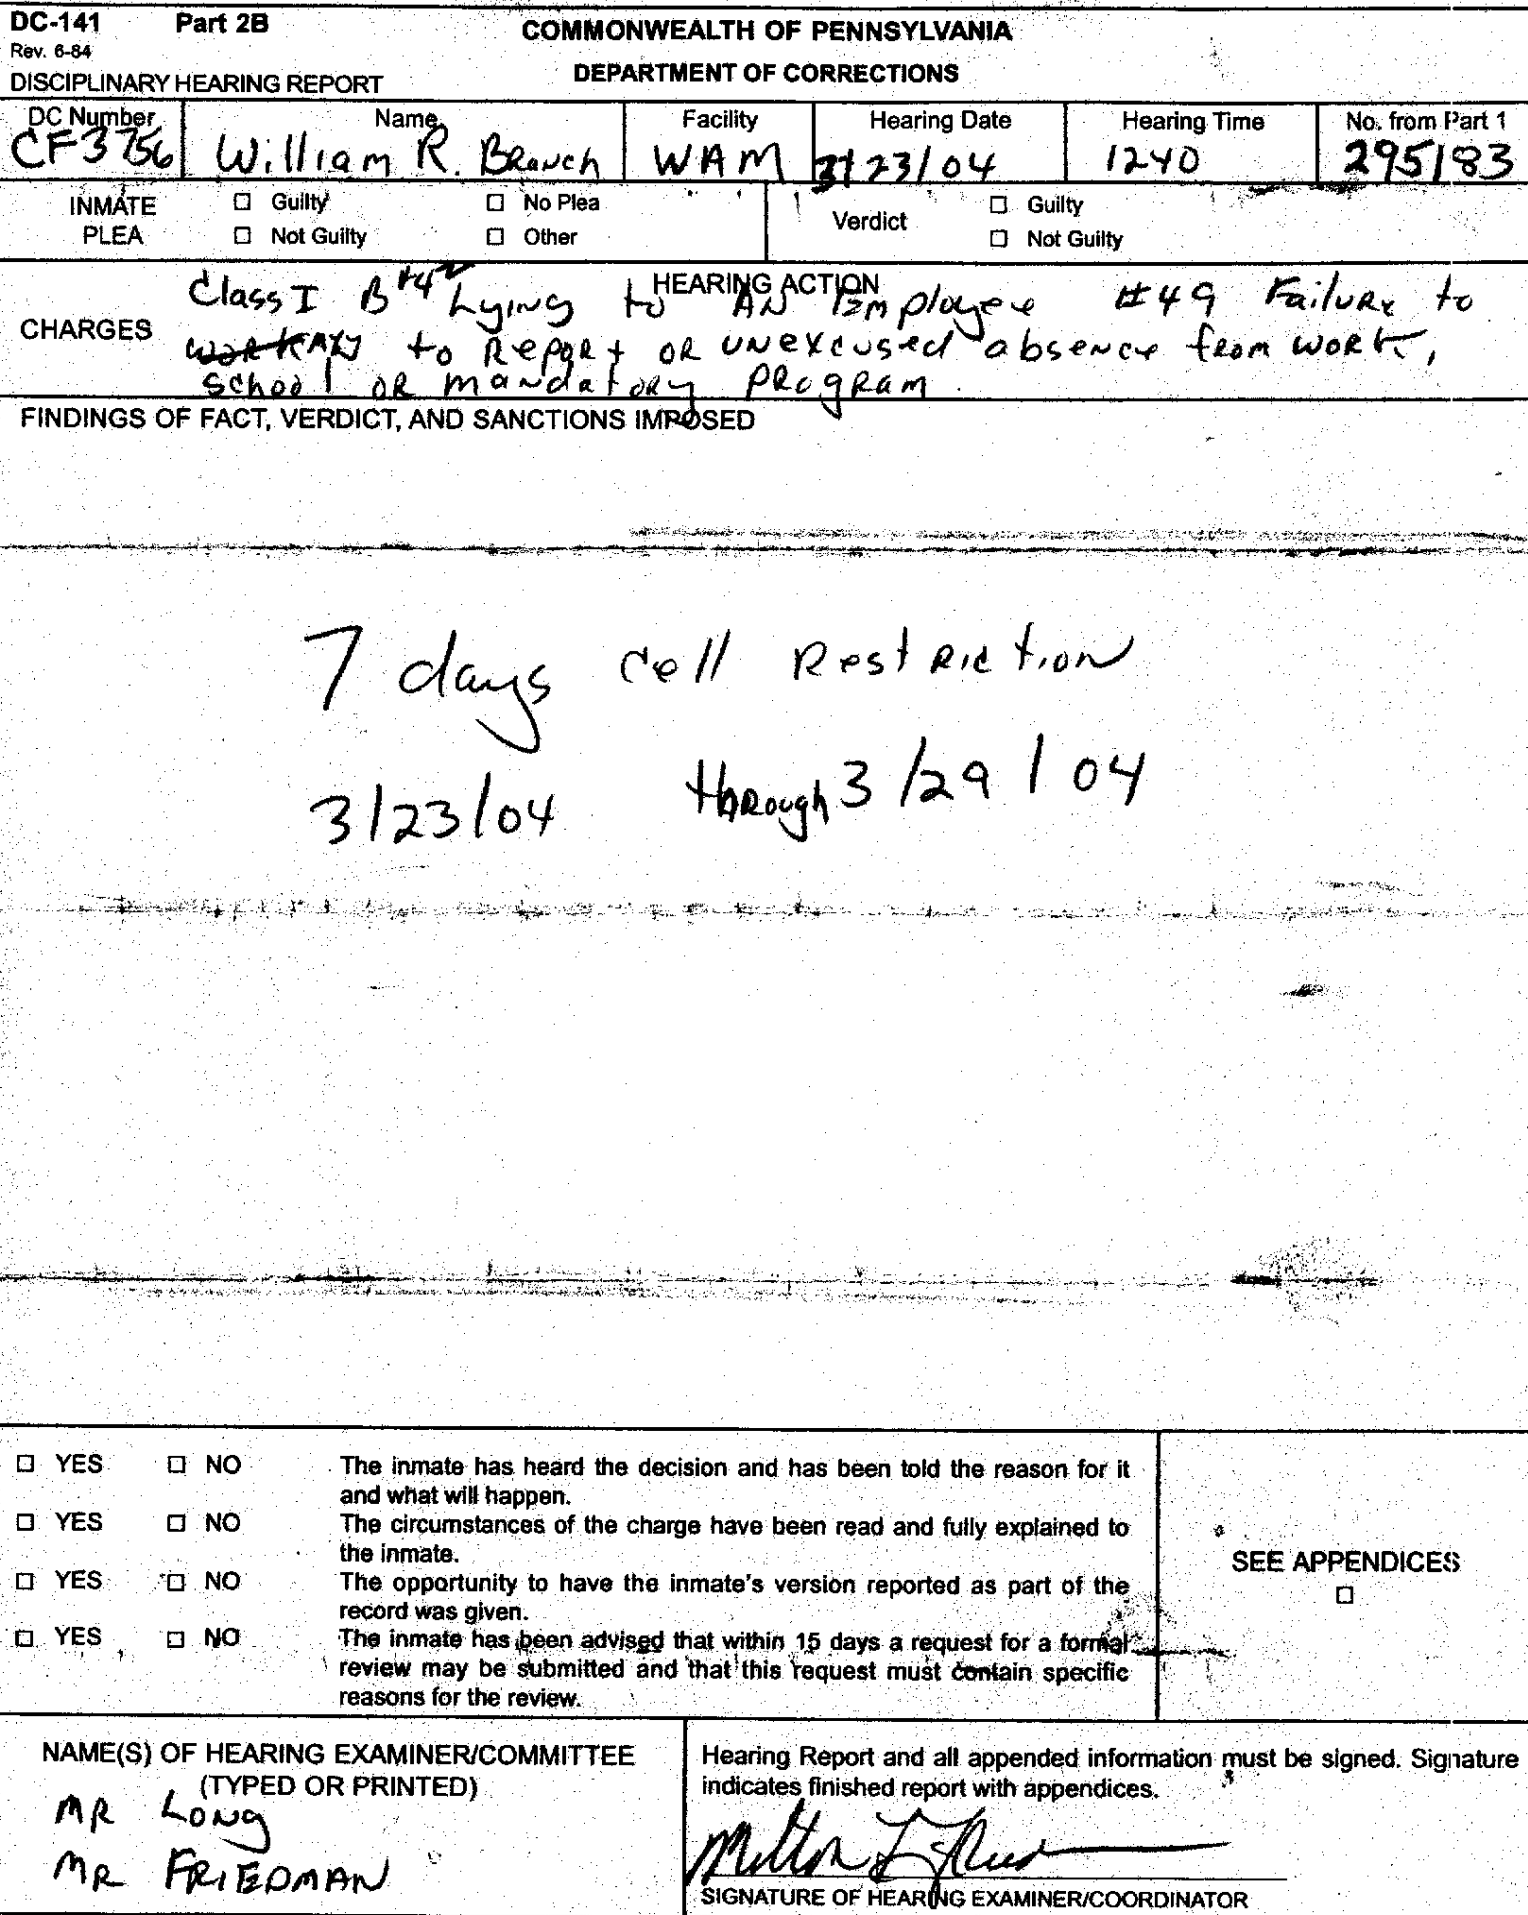 DC-141 Part 2B COMMONWEALTH OF PENNSYLVANIA
Rev. 6-84
DEPARTMENT OF CORRECTIONS
DISCIPLINARY HEARING REPORT
DC Number Name Facility Hearing Date Hearing Time No. from Part 1
CF3756 William R. Branch WAM 3/23/04 1240 295183
INMATE PLEA
☐ Guilty ☐ No Plea
☐ Not Guilty ☐ Other
Verdict
☐ Guilty
☐ Not Guilty
HEARING ACTION
CHARGES
Class I B #42 Lying to AN Employee #49 Failure to
to Report OR UNexcused absence from work,
school OR mandatory PRogRam.
FINDINGS OF FACT, VERDICT, AND SANCTIONS IMPOSED
7 days cell Restriction
3/23/04 through 3/29/04
☐ YES ☐ NO The inmate has heard the decision and has been told the reason for it
and what will happen.
☐ YES ☐ NO The circumstances of the charge have been read and fully explained to
the inmate.
☐ YES ☐ NO The opportunity to have the inmate's version reported as part of the
record was given.
☐ YES ☐ NO The inmate has been advised that within 15 days a request for a formal
review may be submitted and that this request must contain specific
reasons for the review.
SEE APPENDICES
☐
NAME(S) OF HEARING EXAMINER/COMMITTEE
(TYPED OR PRINTED)
MR LONG
MR FRIEDMAN
Hearing Report and all appended information must be signed. Signature
indicates finished report with appendices.
SIGNATURE OF HEARING EXAMINER/COORDINATOR